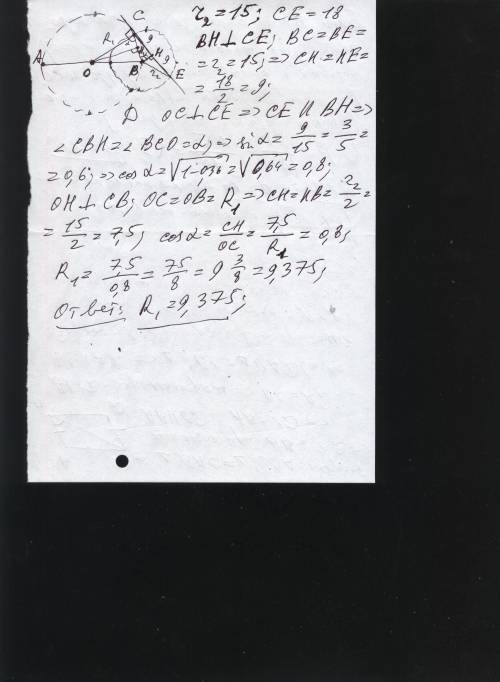 r₂ = 15; CE = 18
BH ⊥ CE; BC = BE =
= r₂ = 15; => CH = HE =
= 18/2 = 9;
OC ⊥ CE => CE ∥ BH =>
∠CBH = ∠BCO = α; => sin α = 9/15 = 3/5 =
= 0,6; => cos α = √(1-0,36) = √0,64 = 0,8;
OH ⊥ CB; OC = OB = R₁ => CH = HB = r₂/2 =
= 15/2 = 7,5; cos α = CH/OC = 7,5/R₁ = 0,8;
R₁ = 7,5/0,8 = 75/8 = 9 3/8 = 9,375;
Ответ: R₁ = 9,375;
C
R₁
9
A
H
9
O
B
r₂
E